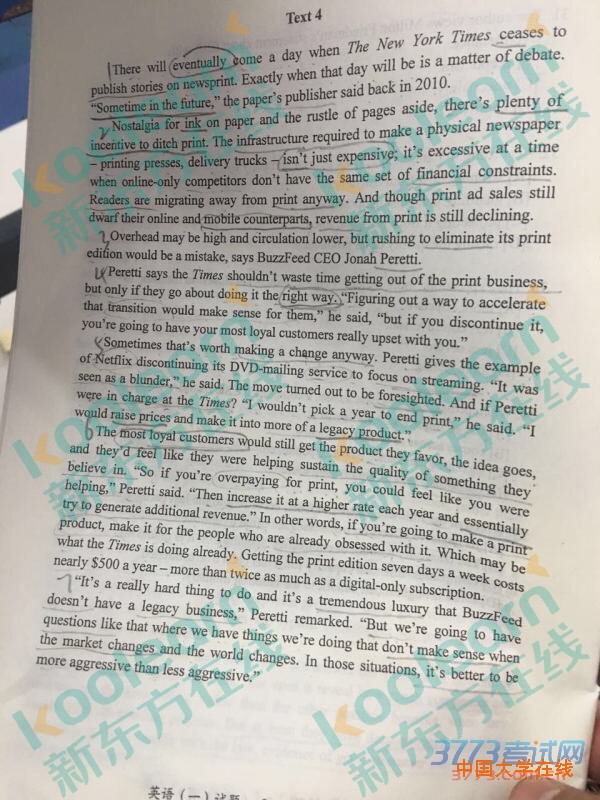 Text 4
There will eventually come a day when The New York Times ceases to
publish stories on newsprint. Exactly when that day will be is a matter of debate.
“Sometime in the future,” the paper's publisher said back in 2010.
Nostalgia for ink on paper and the rustle of pages aside, there's plenty of
incentive to ditch print. The infrastructure required to make a physical newspaper
– printing presses, delivery trucks – isn't just expensive; it's excessive at a time
when online-only competitors don't have the same set of financial constraints.
Readers are migrating away from print anyway. And though print ad sales still
dwarf their online and mobile counterparts, revenue from print is still declining.
Overhead may be high and circulation lower, but rushing to eliminate its print
edition would be a mistake, says BuzzFeed CEO Jonah Peretti.
Peretti says the Times shouldn't waste time getting out of the print business,
but only if they go about doing it the right way. “Figuring out a way to accelerate
that transition would make sense for them,” he said, “but if you discontinue it,
you're going to have your most loyal customers really upset with you.”
Sometimes that's worth making a change anyway. Peretti gives the example
of Netflix discontinuing its DVD-mailing service to focus on streaming. “It was
seen as a blunder,” he said. The move turned out to be foresighted. And if Peretti
were in charge at the Times? “I wouldn't pick a year to end print,” he said. “I
would raise prices and make it into more of a legacy product.”
The most loyal customers would still get the product they favor, the idea goes,
and they'd feel like they were helping sustain the quality of something they
believe in. “So if you're overpaying for print, you could feel like you were
helping,” Peretti said. “Then increase it at a higher rate each year and essentially
try to generate additional revenue.” In other words, if you're going to make a print
product, make it for the people who are already obsessed with it. Which may be
what the Times is doing already. Getting the print edition seven days a week costs
nearly $500 a year – more than twice as much as a digital-only subscription.
“It's a really hard thing to do and it's a tremendous luxury that BuzzFeed
doesn't have a legacy business,” Peretti remarked. “But we're going to have
questions like that where we have things we're doing that don't make sense when
the market changes and the world changes. In those situations, it's better to be
more aggressive than less aggressive.”
英语（一）试题
Koolearn
新东方在线
Koolearn
新东方在线
Koolearn
新东方在线
Koolearn
新东方在线
Koolearn
新东方在线
Koolearn
新东方在线
3773考试网
中国大学在线